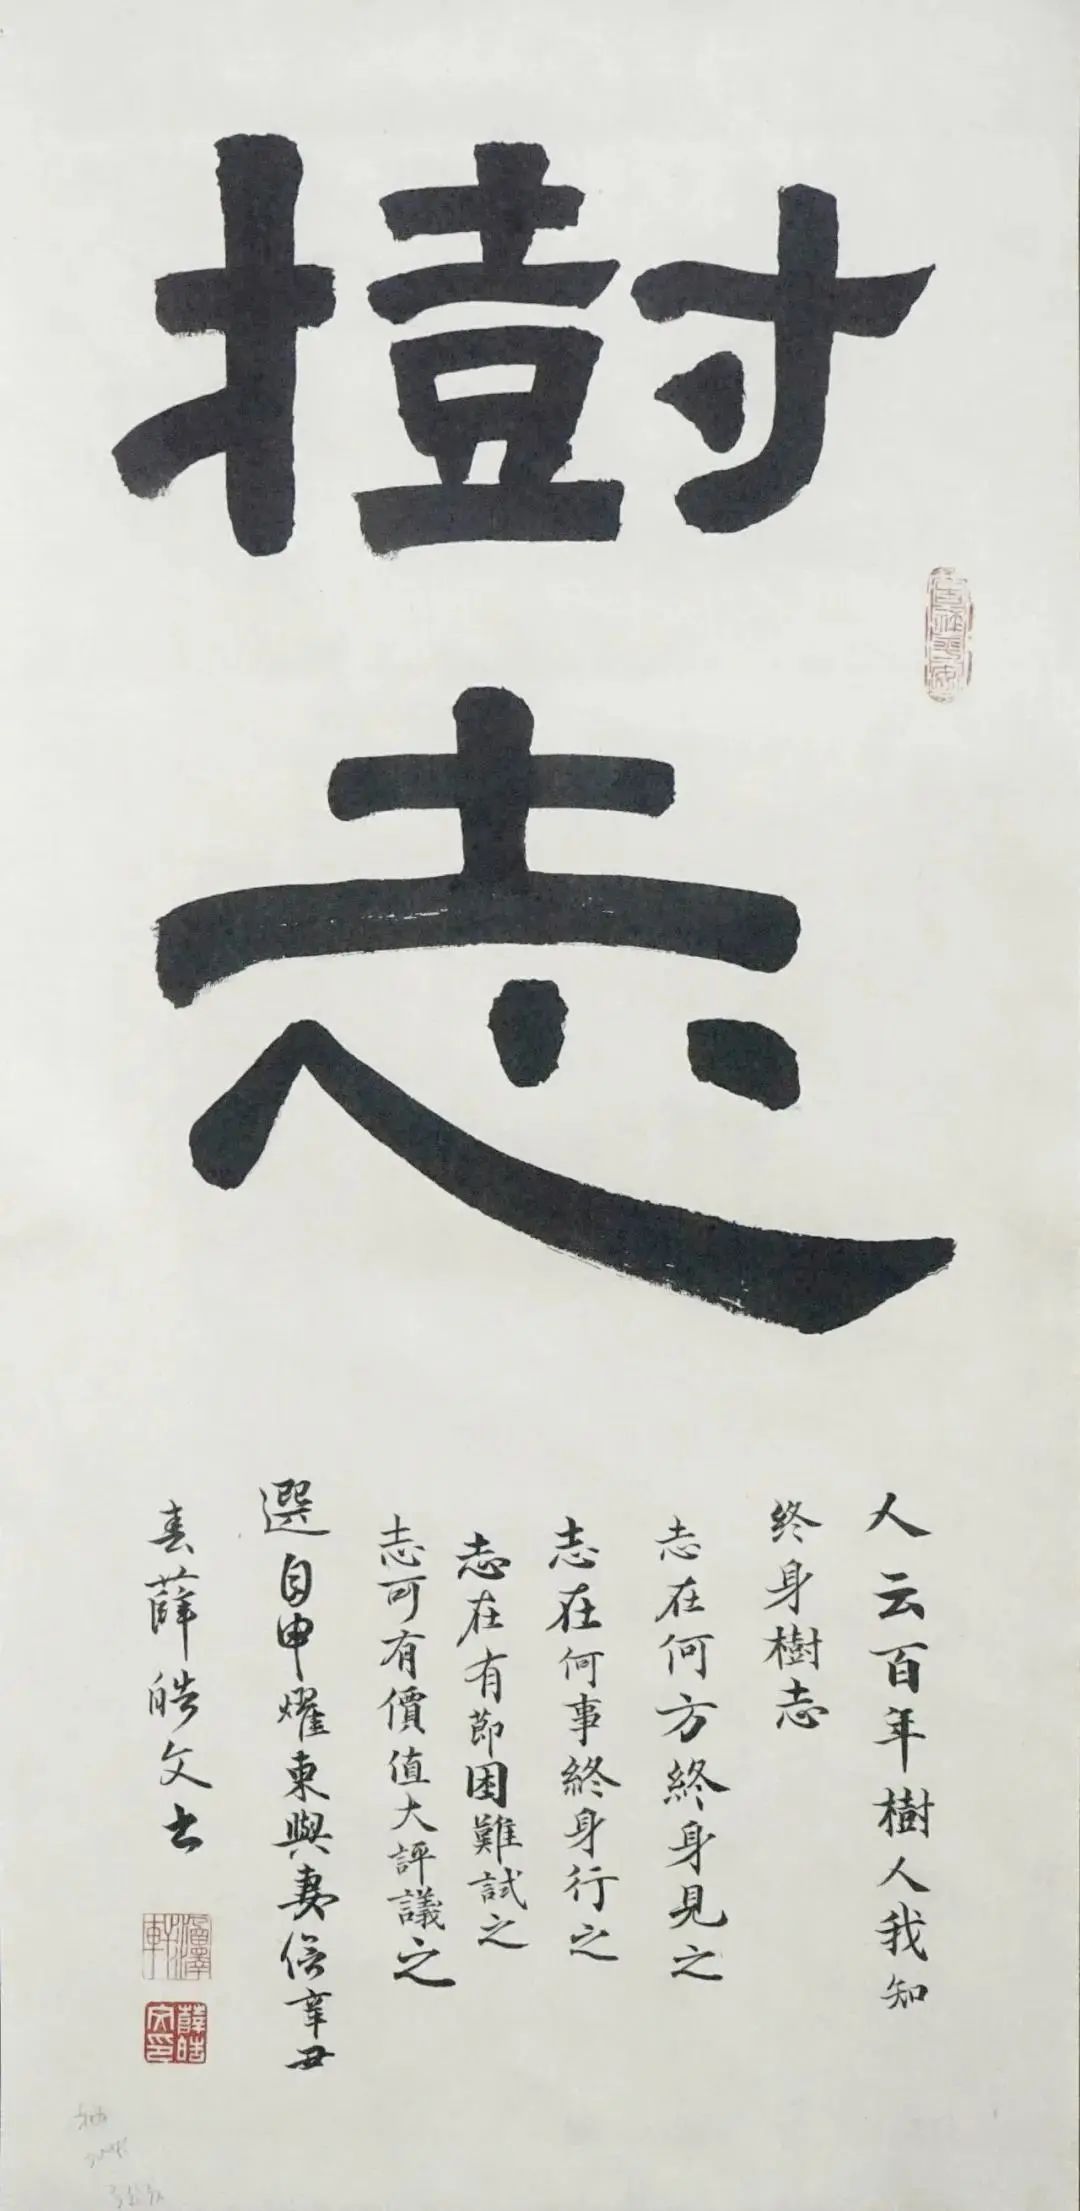 樹
志
人云百年樹人我知
終身樹志
志在何方終身見之
志在何事終身行之
志在有節困難試之
志可有價值大評議之
選自申耀東與妻信辛丑
春薛皓文书
薛皓
文印